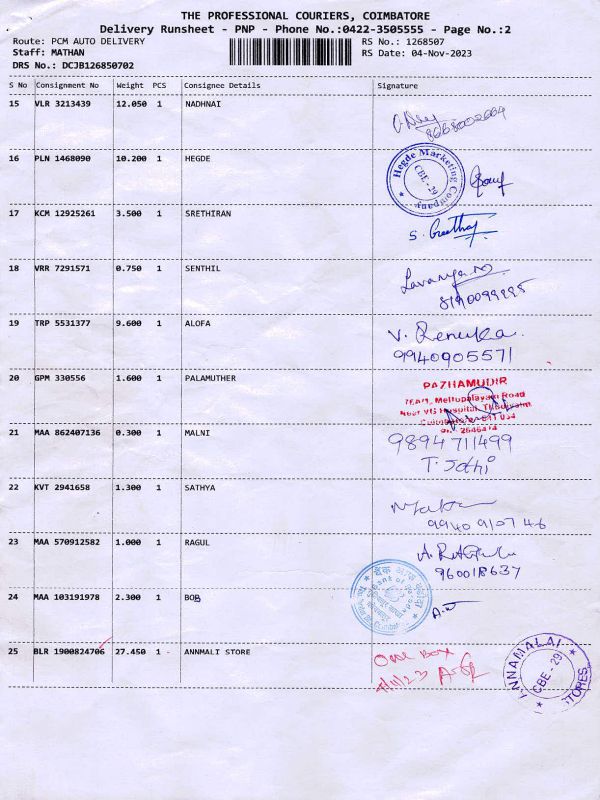 THE PROFESSIONAL COURIERS, COIMBATORE
Delivery Runsheet - PNP - Phone No.:0422-3505555 - Page No.:2
Route: PCM AUTO DELIVERY RS No.: 1268507
Staff: MATHAN RS Date: 04-Nov-2023
DRS No.: DCJB126850702
S No Consignment No Weight PCS Consignee Details Signature
15 VLR 3213439 12.050 1 NADHNAI
8668002664
16 PLN 1468090 10.200 1 HEGDE
Hegde Marketing Company
CBE - 29
17 KCM 12925261 3.500 1 SRETHIRAN
S.
18 VRR 7291571 0.750 1 SENTHIL
Lavanya
19 TRP 5531377 9.600 1 ALOFA
V. Renuka.
9940905571
20 GPM 330556 1.600 1 PALAMUTHER
PAZHAMUDIR
Mettupalayam Road
Near VG Hospital, Thudiyalur
Coimbatore - 641 034
2646474
21 MAA 862407136 0.300 1 MALNI
9894711499
T. Jothi
22 KVT 2941658 1.300 1 SATHYA
9940910746
23 MAA 570912582 1.000 1 RAGUL
A.
960018637
24 MAA 103191978 2.300 1 BOB
Bank of
25 BLR 1900824706 27.450 1 ANNMALI STORE
One Box
4/11/23
ANNAMALAI STORES
CBE - 29